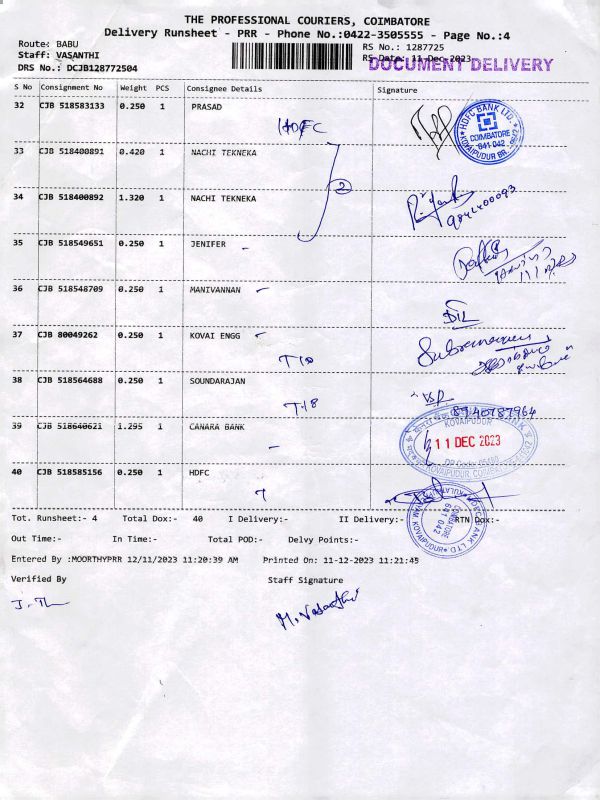 THE PROFESSIONAL COURIERS, COIMBATORE
Delivery Runsheet - PRR - Phone No.:0422-3505555 - Page No.:4
Route: BABU
Staff: VASANTHI
DRS No.: DCJB128772504
RS No.: 1287725
RS Date: 11-Dec-2023
DOCUMENT DELIVERY
S No Consignment No Weight PCS Consignee Details Signature
32 CJB 518583133 0.250 1 PRASAD
HDFC
HDFC BANK LTD. COIMBATORE 641 042 KOVAIPUDUR BR.
33 CJB 518400891 0.420 1 NACHI TEKNEKA
2
34 CJB 518400892 1.320 1 NACHI TEKNEKA
9842400093
35 CJB 518549651 0.250 1 JENIFER
36 CJB 518548709 0.250 1 MANIVANNAN
37 CJB 80049262 0.250 1 KOVAI ENGG
T10
38 CJB 518564688 0.250 1 SOUNDARAJAN
T18
8940787964
39 CJB 518640621 1.295 1 CANARA BANK
KOVAIPUDUR
11 DEC 2023
40 CJB 518585156 0.250 1 HDFC
COIMBATORE 641 042
Tot. Runsheet:- 4 Total Dox:- 40 I Delivery:- II Delivery:- RTN Dox:-
Out Time:- In Time:- Total POD:- Delvy Points:-
Entered By :MOORTHYPRR 12/11/2023 11:20:39 AM Printed On: 11-12-2023 11:21:45
Verified By Staff Signature
M. Vasanthi